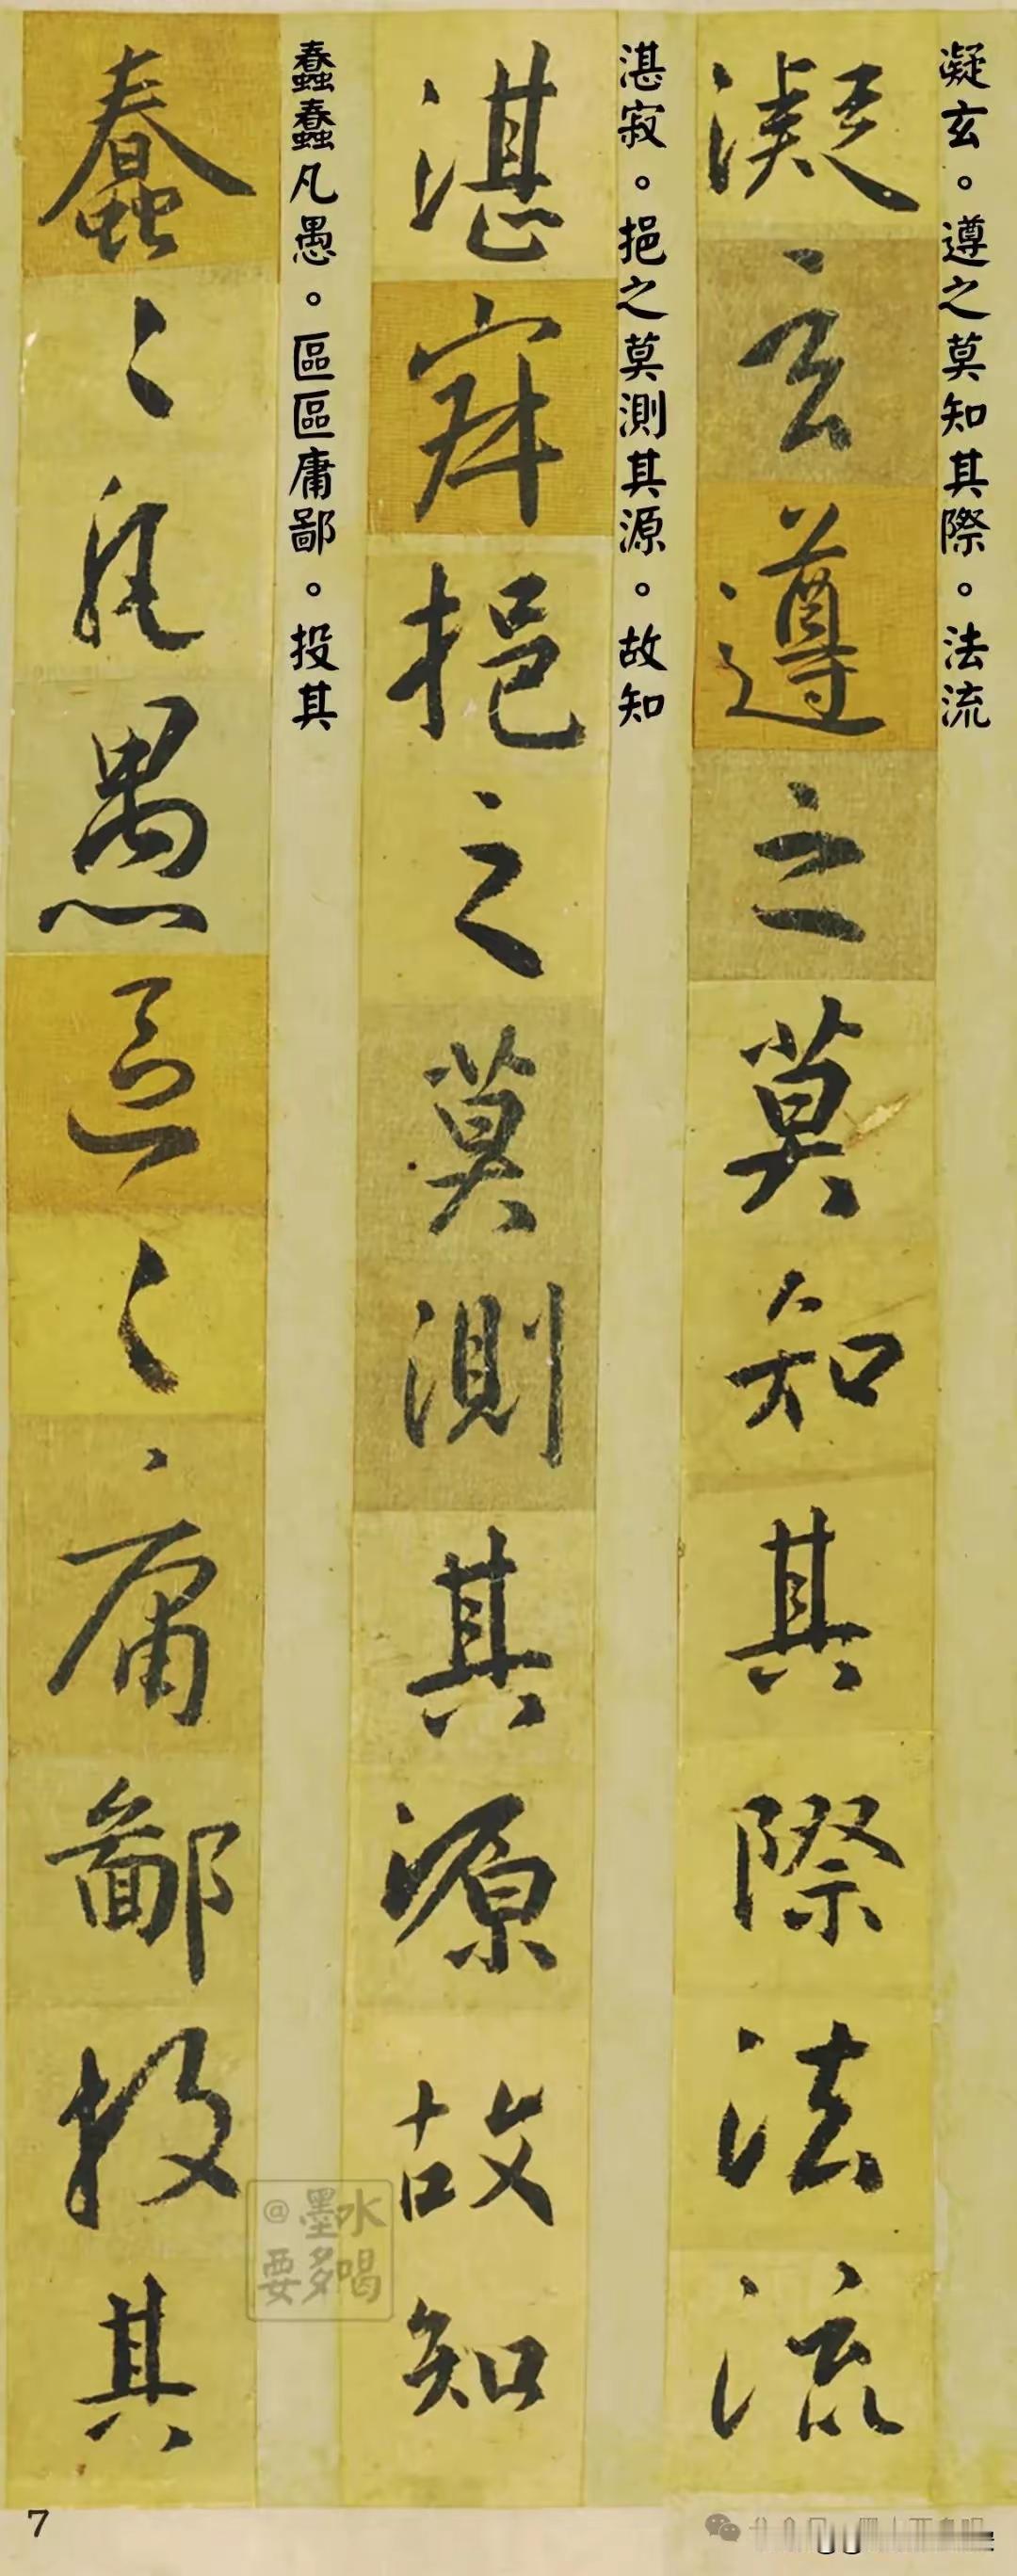 凝玄。遵之莫知其際。法流
凝玄遵之莫知其際法流
湛寂。挹之莫測其源。故知
湛寂挹之莫測其源故知
蠢蠢凡愚。區區庸鄙。投其
蠢〻凡愚區〻庸鄙投其
@墨水
要多喝
7